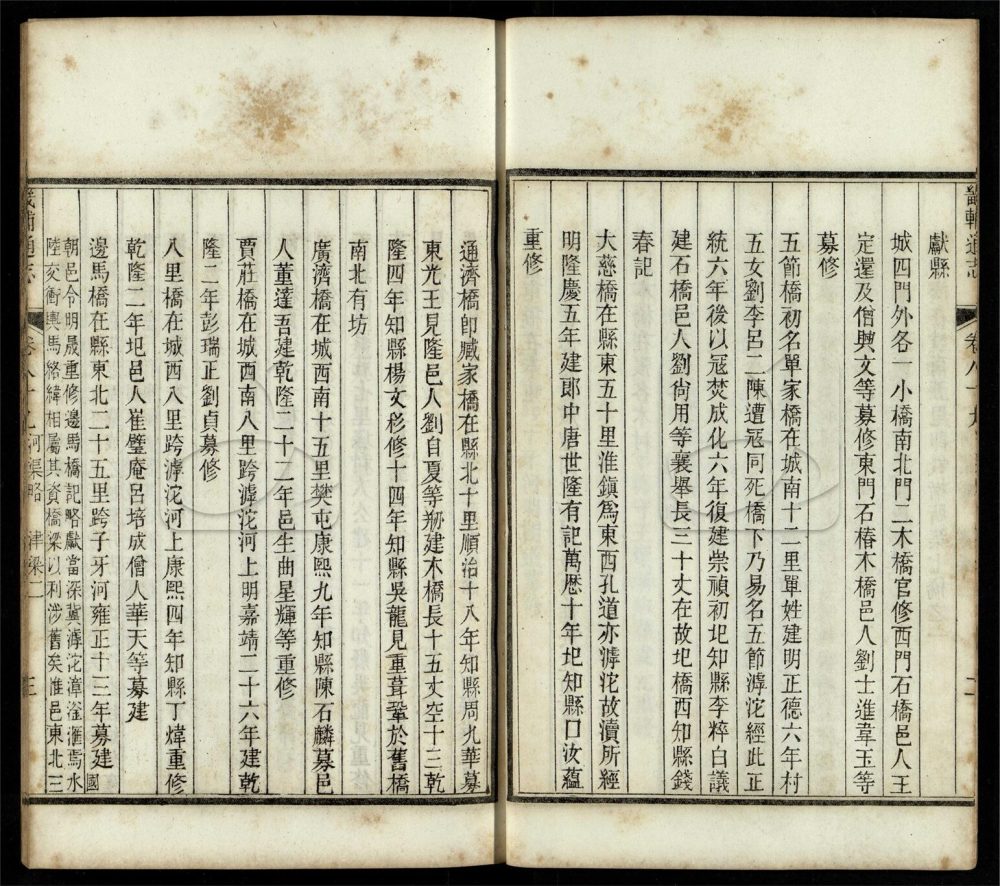 畿輔通志
卷八十九
二
獻縣
城四門外各一小橋南北門二木橋官修西門石橋邑人王
定還及僧興文等募修東門石椿木橋邑人劉士進韋玉等
募修
五節橋初名單家橋在城南十二里單姓建明正德六年村
五女劉李呂二陳遭寇同死橋下乃易名五節滹沱經此正
統六年後以寇焚成化六年復建崇禎初圮知縣李粹白議
建石橋邑人劉尙用等襄舉長三十丈在故圯橋西知縣錢
春記
大慈橋在縣東五十里淮鎭爲東西孔道亦滹沱故瀆所經
明隆慶五年建郎中唐世隆有記萬歷十年圯知縣口汝蘊
重修
通濟橋卽臧家橋在縣北十里順治十八年知縣周九華募
東光王見隆邑人劉自夏等捐建木橋長十五丈空十三乾
隆四年知縣楊文彩修十四年知縣吳龍見重葺鞏於舊橋
南北有坊
廣濟橋在城西南十五里樊屯康熙九年知縣陳石麟募邑
人董達吾建乾隆二十二年邑生曲星輝等重修
賈莊橋在城西南八里跨滹沱河上明嘉靖二十六年建乾
隆二年彭瑞正劉貞募修
八里橋在城西八里跨滹沱河上康熙四年知縣丁煒重修
乾隆二年圯邑人崔璧庵呂培成僧人華天等募建
邊馬橋在縣東北二十五里跨子牙河雍正十三年募建國
朝邑令明晟重修邊馬橋記略獻當深冀滹沱漳滏滙焉水
陸交衝輿馬絡繹相屬其資橋梁以利涉舊矣惟邑東北三
畿輔通志
卷八十九
河渠略
津梁二
三